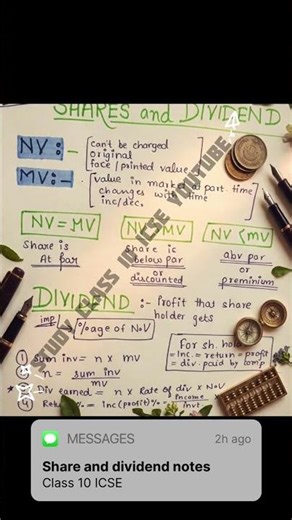 SHARES and DIVIDEND
NV :-
can't be changed
original
face / printed value
MV :-
value in market a part. time
changes with time
inc/dec.
NV = MV
NV > MV
NV < MV
share is
At par
share is
below par
or
discounted
abv par
or
preminium
DIVIDEND :- Profit that share
holder gets
imp
%age of N.V
For sh. hol
= inc. = return = profit
= div. paid by comp
① sum inv = n × mv
② n = sum inv
mv
③ Div earned = n × Rate of div × N.V
④ Return% = inc (profit)% = income
invt
STUDY CLASS 10 ICSE YOUTUBE
MESSAGES
2h ago
Share and dividend notes
Class 10 ICSE